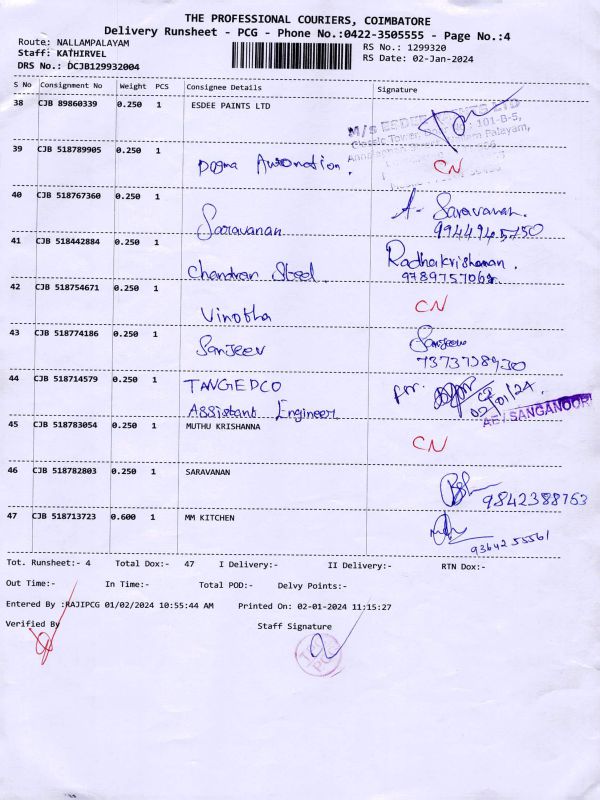 THE PROFESSIONAL COURIERS, COIMBATORE
Delivery Runsheet - PCG - Phone No.:0422-3505555 - Page No.:4
Route: NALLAMPALAYAM RS No.: 1299320
Staff: KATHIRVEL RS Date: 02-Jan-2024
DRS No.: DCJB129932004
S No Consignment No Weight PCS Consignee Details Signature
38 CJB 89860339 0.250 1 ESDEE PAINTS LTD
M/s ESDEE PAINTS LTD
39 CJB 518789905 0.250 1
Automation. CN
40 CJB 518767360 0.250 1 A. Saravanan.
Saaravanan 9944945750
41 CJB 518442884 0.250 1 Radhakrishanan.
Chandran Steel
42 CJB 518754671 0.250 1 CN
Vinotha
43 CJB 518774186 0.250 1 Sanjeev
Sanjeev
44 CJB 518714579 0.250 1 TANGEDCO for.
Assistant Engineer 02/01/24
AE / SANGANOOR
45 CJB 518783054 0.250 1 MUTHU KRISHANNA CN
46 CJB 518782803 0.250 1 SARAVANAN 9842388763
47 CJB 518713723 0.600 1 MM KITCHEN 9364255561
Tot. Runsheet:- 4 Total Dox:- 47 I Delivery:- II Delivery:- RTN Dox:-
Out Time:- In Time:- Total POD:- Delvy Points:-
Entered By :RAJIPCG 01/02/2024 10:55:44 AM Printed On: 02-01-2024 11:15:27
Verified By Staff Signature